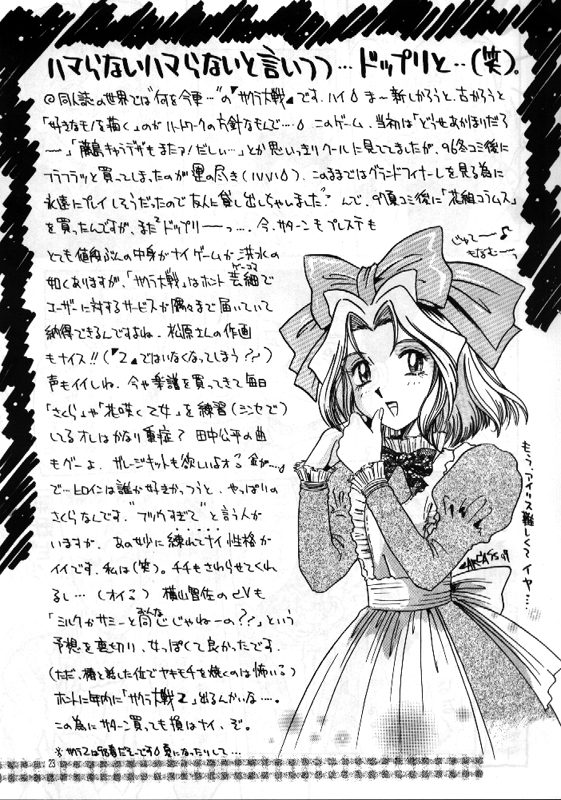 ハマらないハマらないと言いつつ…ドップリと‥(笑)。
◎同人誌の世界では"何を今更…"の『サクラ大戦』です。ハイ♢ま〜新しかろうと古かろうと
「好きなモノを描く」のがハートワークの方針なもんで…♢このゲーム、当初は「どうせあかほりだろ
ー」「藤島キャラデもまたァ!だしぃ…」とか思いっきりクールに見てましたが、96冬コミ後に
フラフラッと買ってしまったのが運の尽き(ハハハ♢)。このままではグランドフィナーレを見る為に
永遠にプレイしそうだったので友人に貸し出しちゃいました"んで、97頃コミ後に「花組コラムス」
を買ったんですが、まだドップリーーっ…。今、サターンもプレステも
とても値段ぶんの中身がナイゲームが洪水の
如くありますが、『サクラ大戦』はホント芸細で
ゲーコマ
ユーザーに対するサービスが隅々まで届いていて
納得できるんですよね。松原さんの作画
もナイス!!(『2』ではいなくなってしまう??)
声もイイしね。今や楽譜を買ってきて毎日
「さくら」や「花咲く乙女」を練習(シンセで)
してるオレはかなり重症?田中公平の曲
もグーよ。ガレージキットも欲しいよオる 金が…。
で…ヒロインは誰が好きかっつうと、やっぱりの
さくらなんです。"ブリッ子すぎて"と言う人が
いますが、あの妙に練れてナイ性格が
イイです。私は(笑)。チチもさわらせてくれ
るし…(オイ♢)横山智佐のCVも
「ミルクがサミーと同じじゃねーの??」という
予想を裏切り、女っぽくて良かったです。
(ただ、椿と話した位でヤキモチを焼くのは怖いる)
ホントに年内に『サクラ大戦2』出るんかいな…。
この為にサターン買っても損はナイ、ぞ。
※サクラ2は98春だそーです♢夏になったりして…
じゃてー〜♪
もなむーっ
もう、アイリス難しくてイヤ…
23